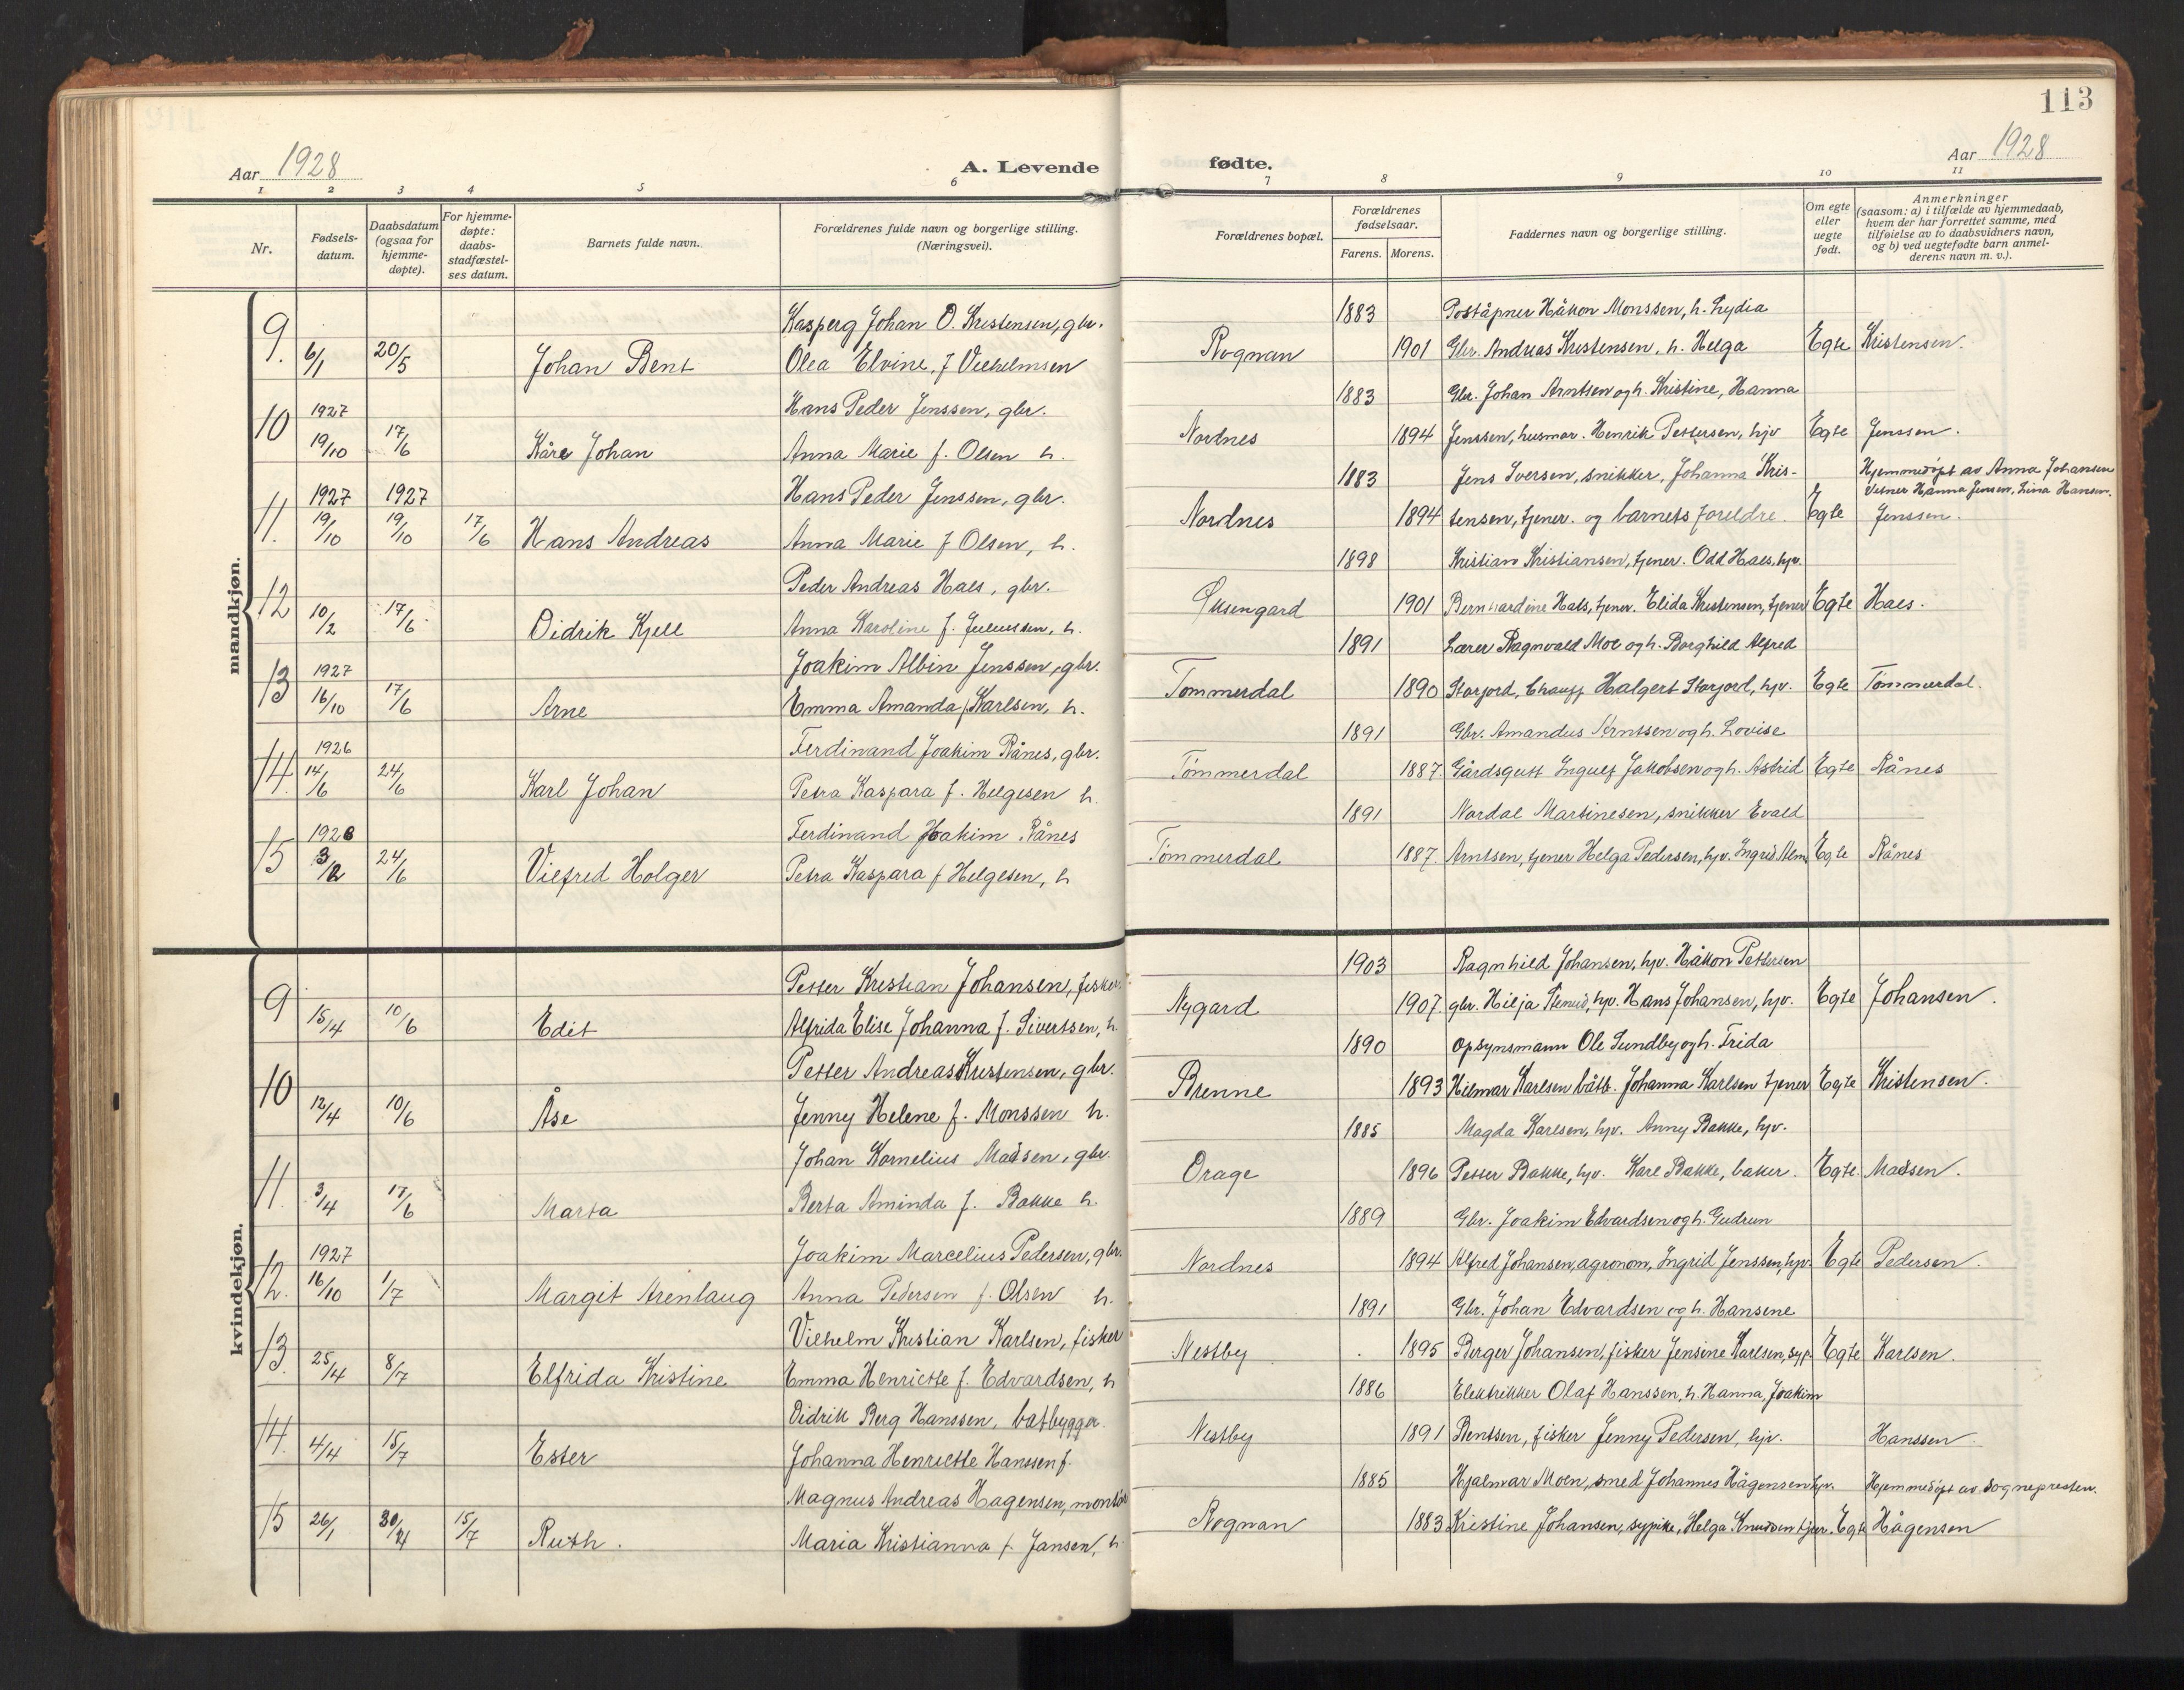 113
Aar 1928
A. Levende
fødte.
Aar 1928
1 2 3 4 5 6 7 8 9 10 11
Nr.
Fødsels-datum.
Daabsdatum (ogsaa for hjemme-døpte).
For hjemme-døpte: daabs-stadfæstel-ses datum.
Barnets fulde navn.
Forældrenes fulde navn og borgerlige stilling. (Næringsvei).
Forældrenes bopæl.
Forældrenes fødselsaar.
Farens. Morens.
Faddernes navn og borgerlige stilling.
Om egte eller uegte født.
Anmerkninger (saasom: a) i tilfælde av hjemmedaab, hvem der har forrettet samme, med tilføielse av to daabsvidners navn, og b) ved uegtefødte barn anmel-derens navn m. v.).
mandkjøn.
Kasperg Johan O. Kristensen, gbr. 1883 Poståpner Håkon Monssen, h. Lydia
9. 6/1 20/5 Johan Bent Olea Elvine f Vilhelmsen Rognan 1901 Gbr. Andreas Kristensen, h. Helga Egte Kristensen.
1927 Hans Peder Jenssen, gbr. 1883 Gbr. Johan Arntsen og h. Kristine, Hanna
10 19/10 17/6 Kåre Johan Anna Marie f. Olsen h. Nordnes 1894 Jenssen, husmor. Henrik Pettersen, hjv Egte Jenssen.
1927 1927 Hans Peder Jenssen, gbr. 1883 Jens Iversen, snikker, Johanna Kris- Hjemmedøpt av Anna Johansen
Vitner Hanna Jensen, Lina Hansen.
11. 19/10 19/10 17/6 Hans Andreas Anna Marie f Olsen, h. Nordnes 1894 tensen, tjener. og barnets foreldre. Egte Jenssen.
Peder Andreas Hals, gbr. 1898 Kristian Kristiansen, tjener. Odd Hals, hjv.
12 10/2 17/6 Didrik Kjell Anna Karoline f. Juliussen, h. Øksengard 1901 Bernhardine Hals, tjener. Elida Kristensen, tjener Egte Hals.
1927 Joakim Albin Jenssen, gbr. 1891 Lærer Ragnvald Moe og h. Borghild Alfred
13 16/10 17/6 Arne Emma Amanda f. Karlsen, h. Tømmerdal 1890 Storjord, Chauff Halgert Storjord, hjv. Egte Tømmerdal.
1926 Ferdinand Joakim Rånes, gbr. 1891 Gbr. Amandus Arntsen og h. Lovise
14. 14/6 24/6 Karl Johan Petra Kaspara f. Helgesen h. Tømmerdal 1887. Gårdsgutt Ingulf Jakobsen og h. Astrid Egte Rånes
1928 Ferdinand Joakim Rånes 1891 Nordal Martinesen, snikker Evald
15 3/2 24/6 Vilfred Holger Petra Kaspara f Helgesen, h Tømmerdal 1887. Arntsen, tjener Helga Pedersen, hjv. Ingrid Alm Egte Rånes
kvindekjøn.
Petter Kristian Johansen, fisker 1903 Ragnhild Johansen, hjv. Håkon Pettersen
9 15/4 10/6 Edit Alfrida Elise Johanna f. Sivertsen, h. Nygard 1907. gbr. Hilja hjv. Hans Johansen, hjv. Egte Johansen.
Petter Andreas Kristensen, gbr. 1890 Opsynsmann Ole Sundby og h. Frida
10 12/4 10/6 Åse Jenny Helene f. Monssen h. Brenne 1893 Hilmar Karlsen båtb. Johanna Karlsen tjener Egte Kristensen.
Johan Kornelius Madsen, gbr. 1885 Magda Karlsen, hjv. Anny Bakke, hjv.
11. 3/4 17/6 Marta Berta Aminda f. Bakke h. Drage 1896 Petter Bakke, hjv. Karl Bakke, baker. Egte. Madsen.
1927 Joakim Marcelius Pedersen, gbr. 1889 Gbr. Joakim Edvardsen og h. Gudrun
12. 16/10 1/7 Margit Arenlaug Anna Pedersen f. Olsen h. Nordnes 1894 Alfred Johansen, agronom, Ingrid Jenssen, hjv. Egte Pedersen.
Vilhelm Kristian Karlsen, fisker 1891 Gbr. Johan Edvardsen og h. Hansene
13. 25/4 8/7 Elfrida Kristine Emma Henriette f. Edvardsen, h Nestby 1895 Berger Johansen, fisker Jensine Karlsen, syp. Egte Karlsen.
Didrik Berg Hanssen, båtbygger. 1886 Elektrikker Olaf Hanssen, h. Hanna, Joakim
14. 4/4 15/7 Ester Johanna Henriette Hanssen f. Nestby 1891 Bentsen, fisker Jenny Pedersen, hjv. Hanssen.
Magnus Andreas Hagensen, montør 1885 Hjalmar Moen, smed Johannes Hågensen hjv. Hjemmedøpt av Sognepresten.
15 26/1 30/4 15/7 Ruth. Maria Kristianna f Jansen, h. Rognan 1883 Kristine Johansen, sypike, Helga Knudsen tjener. Egte Hågensen